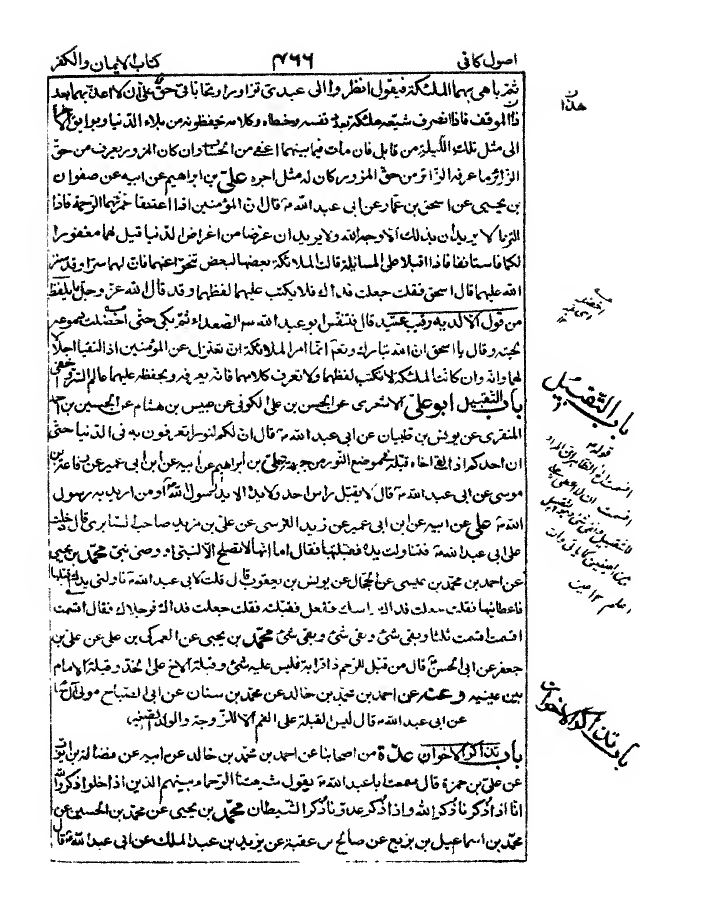 اصول کافی ۴۶۶ کتاب الایمان والکفر
هذان
ثم یباهی بهما الملئکة فیقول انظروا الی عبدی تزاورا وتحابا فی حق علی ان لا اعذبهما بعد
ذا الموقف فاذا انصرف شیعه ملئکة عدد نفسه وخطاه وکلامه یحفظونه من بلاء الدنیا وبوائق الاخرة
الی مثل تلک اللیلة من قابل فان مات فیما بینهما اعفی من الحساب وان کان المزور یعرف من حق
الزائر ما عرفه الزائر من حق المزور کان له مثل اجره علی بن ابراهیم عن ابیه عن صفوان
بن یحیی عن اسحق بن عمار عن ابی عبد الله ع قال ان المؤمنین اذا اعتنقا غمرتهما الرحمة فاذا
التزما لا یریدان بذلک الا وجه الله ولا یریدان غرضا من اغراض الدنیا قیل لهما مغفورا
لکما فاستانفا فاذا اقبلا علی المسائلة قالت الملائکة بعضها لبعض تنحوا عنهما فان لهما سرا وقد ستر
الله علیهما قال اسحق فقلت جعلت فداک فلا یکتب علیهما لفظهما وقد قال الله عز وجل ما یلفظ
من قول الا لدیه رقیب عتید قال فتنفس ابو عبد الله ع الصعداء ثم بکی حتی اخضلت دموعه
لحیته وقال یا اسحق ان الله تبارک وتعم انما امر الملائکة ان تعتزل عن المؤمنین اذا التقیا اجلالا
لهما وانه وان کانت الملئکة لا تکتب لفظهما ولا تعرف کلامهما فانه یعرفه ویحفظه علیهما عالم السر واخفی
باب التقبیل
باب التقبیل ابو علی الاشعری عن الحسن بن علی الکوفی عن عبیس بن هشام عن الحسین بن احمد
المنقری عن یونس بن ظبیان عن ابی عبد الله ع قال ان لکم لنورا تعرفون به فی الدنیا حتی
ان احدکم اذا لقی اخاه قبله فی موضع النور من جبهته علی بن ابراهیم عن ابیه عن ابن ابی عمیر عن رفاعة بن
موسی عن ابی عبد الله ع قال لا یقبل راس احد ولا یده الا ید رسول الله ص او من ارید به رسول
الله ص علی عن ابیه عن ابن ابی عمیر عن زید النرسی عن علی بن مزید صاحب السابری قال دخلت
علی ابی عبد الله ع فتناولت یده فقبلتها فقال اما انها لا تصلح الا لنبی او وصی نبی محمد بن یحیی
عن احمد بن محمد بن عیسی عن الحجال عن یونس بن یعقوب قال قلت لابی عبد الله ع ناولنی یدک اقبلها
فاعطانیها فقلت جعلت فداک راسک ففعل فقبلته فقلت جعلت فداک فرجلاک فقال اقسمت
اقسمت اقسمت ثلثا وبقی شئ وبقی شئ وبقی شئ محمد بن یحیی عن العمرکی بن علی عن علی بن
جعفر عن ابی الحسن ع قال من قبل للرحم ذا قرابة فلیس علیه شئ وقبلة الاخ علی الخد وقبلة الامام
بین عینیه وعنه عن احمد بن محمد بن خالد عن محمد بن سنان عن ابی الصباح مولی آل سام
عن ابی عبد الله ع قال لیس القبلة علی الفم الا للزوجة والولد الصغیر
باب تذاکر الاخوان
باب تذاکر الاخوان عدة من اصحابنا عن احمد بن محمد بن خالد عن ابیه عن فضالة بن ایوب
عن علی بن حمزة قال سمعت ابا عبد الله ع یقول شیعتنا الرحماء بینهم الذین اذا خلوا ذکروا الله
انا اذا ذکرنا ذکر الله واذا ذکر عدونا ذکر الشیطان محمد بن یحیی عن محمد بن الحسین عن
محمد بن اسماعیل بن بزیع عن صالح بن عقبة عن یزید بن عبد الملک عن ابی عبد الله ع قال